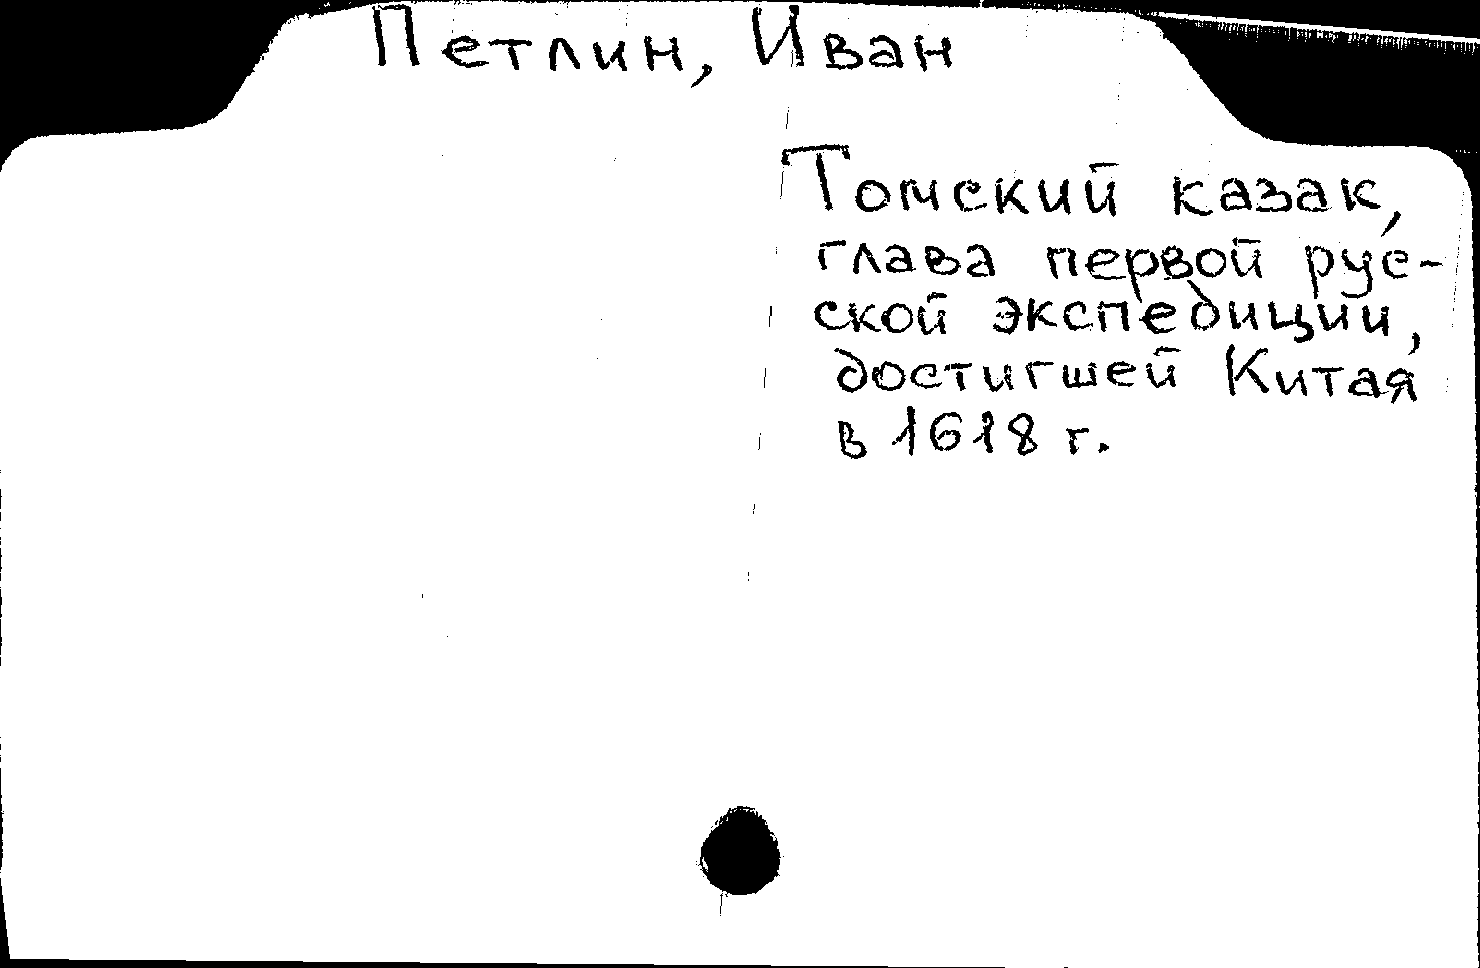 Петлин, Иван
Томский казак,
глава первой рус-
ской экспедиции,
достигшей Китая
в 1618 г.